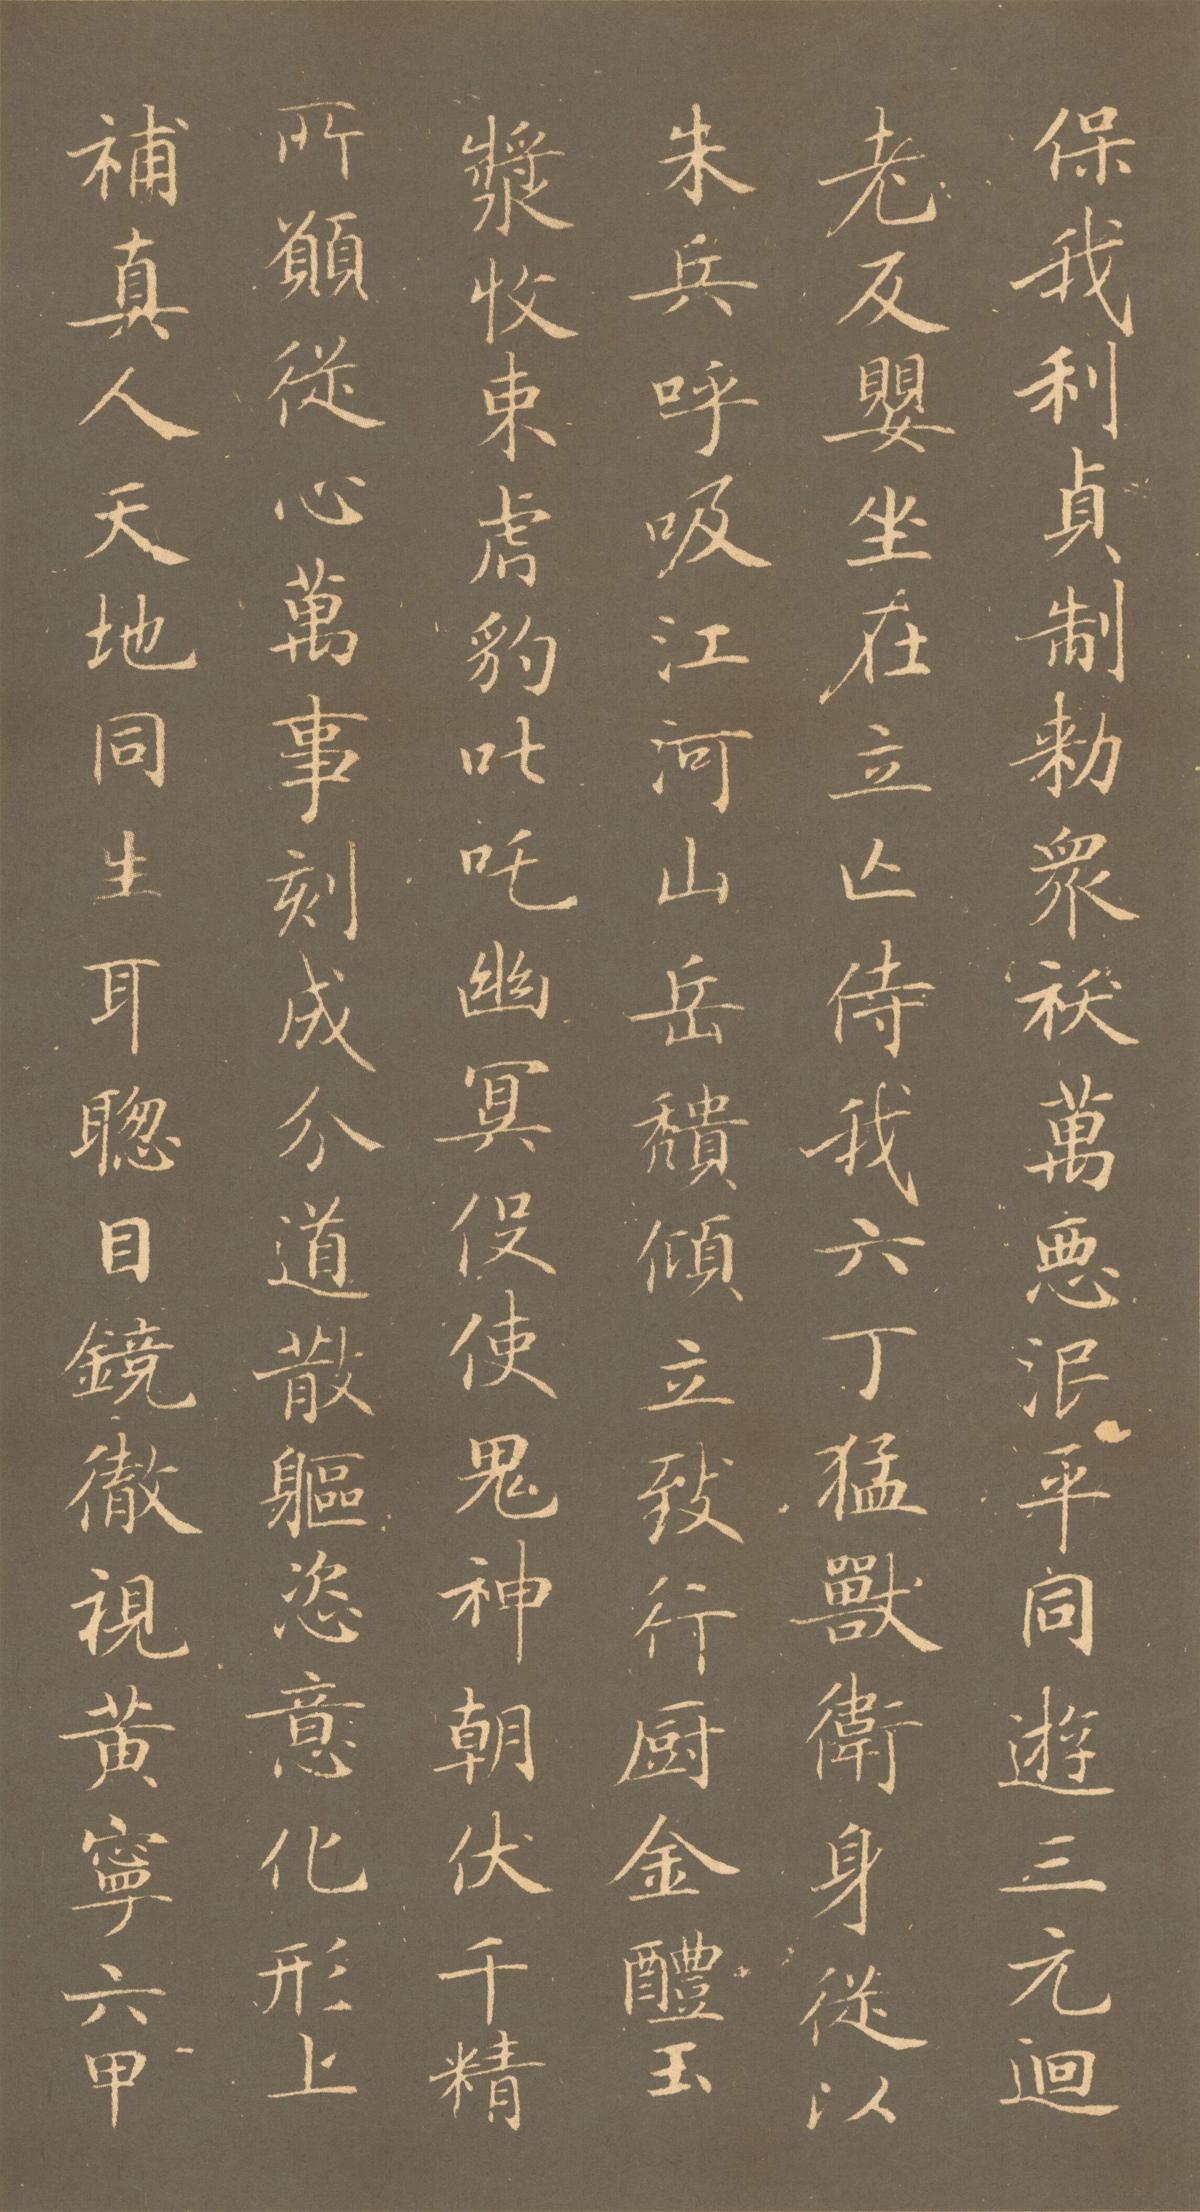 保我利貞制勑衆祅萬惡泯平同遊三元迴
老反嬰坐在立亡侍我六丁猛獸衛身從以
朱兵呼吸江河山岳穨傾立致行厨金醴玉
漿收束虎豹叱吒幽冥役使鬼神朝伏千精
所願從心萬事剋成分道散軀恣意化形上
補真人天地同生耳聰目鏡徹視黃寧六甲